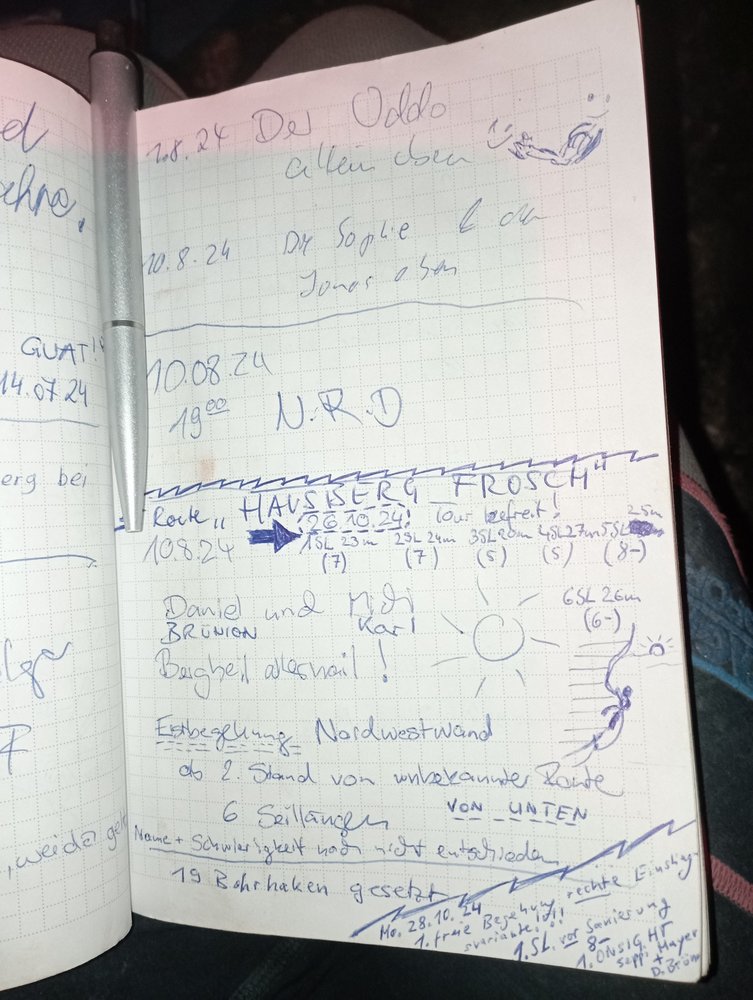 el
ehre,
GUAT!!
14.07.24
erg bei
lga
, weider geh
1.8.24 Der Oddo
allein oben
10.8.24 Die Sophie & der
Jonas oben
10.08.24
19:00 N.R.D
Route „HAUSBERG FROSCH“
26.10.24! Tour befreit!
10.8.24 1SL 23m 2SL 24m 3SL 20m 4SL 27m 5SL 25m
(7) (7) (5) (5) (8-)
6SL 26m
(6-)
Daniel und Michi
BRÜNION Karl
Bergheil allesheil!
Erstbegehung Nordwestwand
ab 2. Stand von unbekannter Route
6 Seillängen VON UNTEN
Name + Schwierigkeit noch nicht entschieden
19 Bohrhaken gesetzt
Mo. 28.10.24
1. freie Begehung rechte Einstiegs-
variante!!!
1.SL. vor Sanierung
8-
1. ONSIGHT
Sepp. Mayer
+
D. Brün